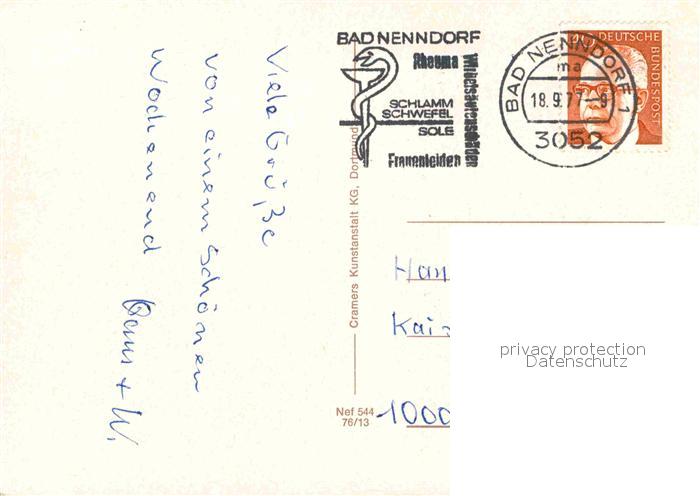 Viele Grüße
von einem schönen
Wochenend
BAD NENNDORF
Rheuma
Wirbelsäulenschäden
SCHLAMM
SCHWEFEL
SOLE
Frauenleiden
BAD NENNDORF 1
ma
18.9.77-9
3052
DEUTSCHE
BUNDESPOST
Cramers Kunstanstalt KG, Dortmund
Han
Kai
1000
Nef 544
76/13
privacy protection
Datenschutz